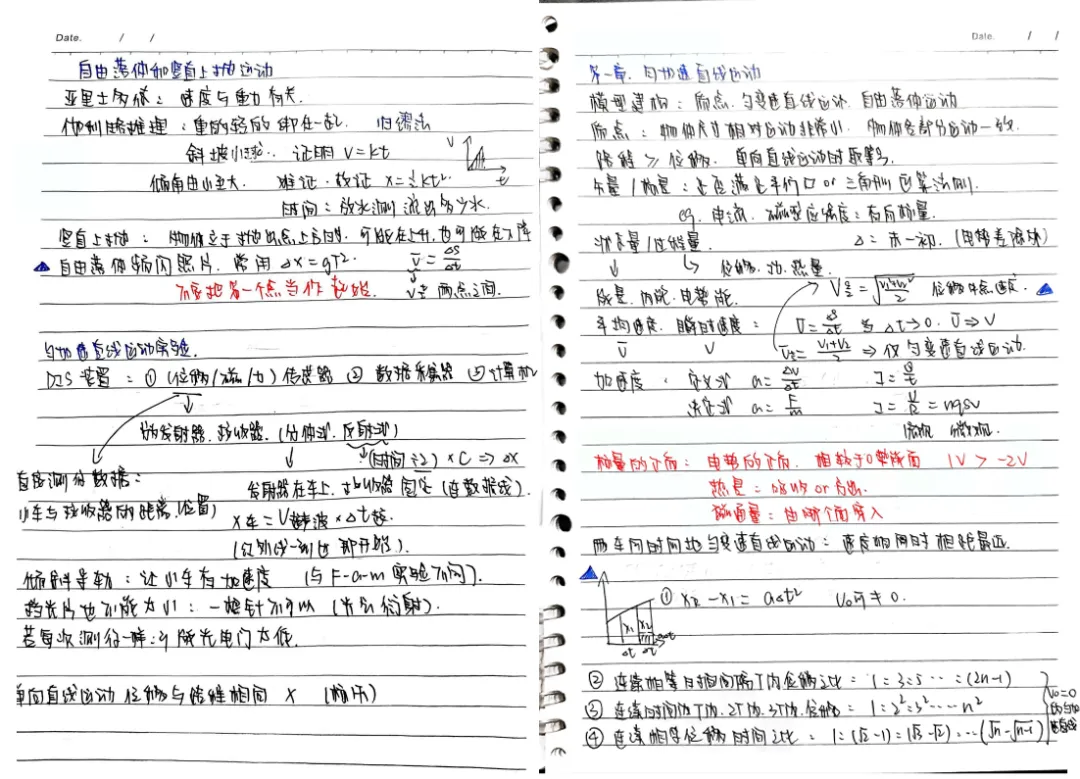 Date. / /
自由落体和竖直上抛运动
亚里士多德：速度与重力有关.
伽利略推理：重的轻的绑在一起. 归谬法
斜坡小球. 证明 v=kt
v
t
倾角由小至大. 验证 x=½kt².
时间：放水测流出多少水.
竖直上抛：物体位于抛出点上方时. 可能在上升, 也可能在下降
自由落体频闪照片. 常用 Δx=gT². v̄=Δs/Δt
不要把第一个点当作起始. v是两点之间.
匀加速直线运动实验.
DIS装置：① (位移/磁/力)传感器 ② 数据采集器 ③ 计算机
发射器. 接收器. (分体式. 反射式)
(时间÷2)×C ⇒ Δx
直接测得数据：
小车与接收器的距离(位置)
发射器在车上. 接收器固定 (连数据线).
x车 = V超声波 × Δt
(红外线一到 即开始).
倾斜导轨：让小车有加速度 (与F-a-m实验不同).
挡光片也不能太小：一根针不可以 (光会衍射).
若每次测得一样：可能光电门太低.
单向直线运动 位移与路程相同 × (标矢)
Date. / /
第一章. 匀加速直线运动
模型建构：质点. 匀变速直线运动. 自由落体运动
质点：物体尺寸相对运动非常小. 物体各部分运动一致.
路程 ≥ 位移. 单向直线运动时取等号.
矢量/标量：是否满足平行四边形 or 三角形运算法则.
eg. 电流. 磁感应强度：有向标量.
状态量/过程量. Δ=末-初. (电势差除外)
位移. 功. 热量.
能量. 内能. 电势能. V½=√(v₁²+v₂²)/2 位移中点速度.
平均速度. 瞬时速度： v̄=Δs/Δt 当Δt→0. v̄⇒v
v̄ v v̄½=(v₁+v₂)/2 ⇒ 仅匀变速直线运动.
加速度. 定义式 a=Δv/Δt I=Q/t
决定式 a=F/m I=U/R=nqsv
宏观 微观.
标量的正负：电势的正负. 相较于0势能面 1V > -2V
热量：吸收 or 放出.
磁通量：由哪个面穿入
两车同时同地匀变速直线运动：速度相同时相距最远.
① x₂-x₁=aΔt² v₀可≠0.
x₁ x₂
Δt Δt
② 连续相等时间间隔T内位移之比=1:3:5…:(2n-1)
③ 连续时间内T内. 2T内. 3T内. 位移=1:2²:3²…n²
④ 连续相等位移时间之比=1:(√2-1):(√3-√2):…(√n-√n-1)
v₀=0